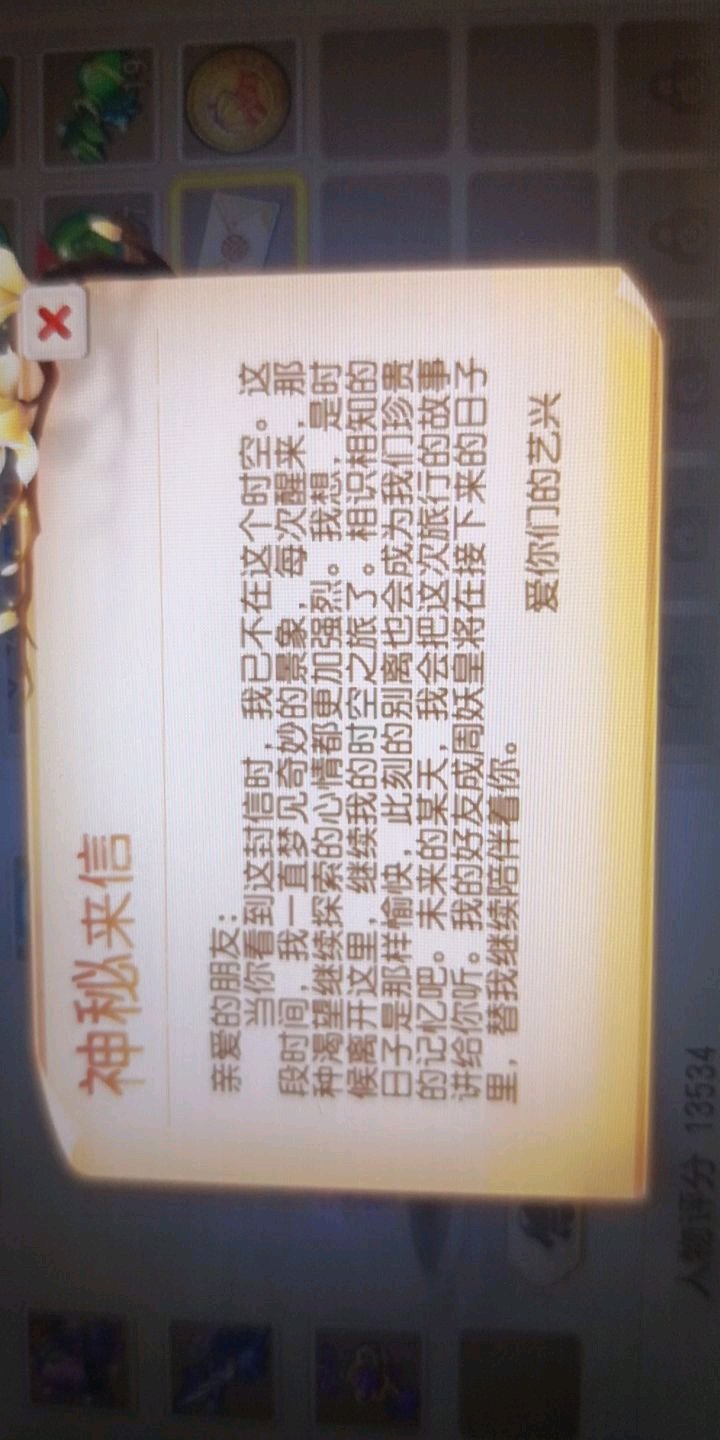 神秘来信
亲爱的朋友：
当你看到这封信时，我已不在这个时空。这
段时间，我一直梦见奇妙的景象，每次醒来，那
种渴望继续探索的心情都更加强烈。我想，是时
候离开这里，继续我的时空之旅了。相识相知的
日子是那样愉快，此刻的别离也会成为我们珍贵
的记忆吧。未来的某天，我会把这次旅行的故事
讲给你听。我的好友成周妖皇将在接下来的日子
里，替我继续陪伴着你。
爱你们的艺兴
人物评分 13534